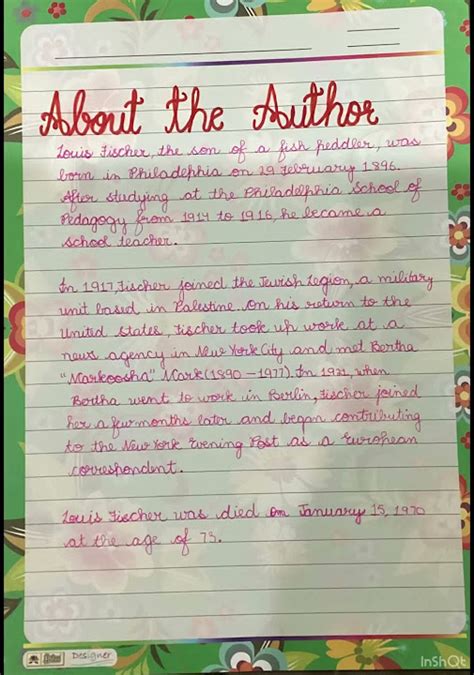 About the Author
Louis Fischer, the son of a fish peddler, was
born in Philadelphia on 29 February 1896.
After studying at the Philadelphia School of
Pedagogy from 1914 to 1916, he became a
school teacher.
In 1917, Fischer joined the Jewish Legion, a military
unit based in Palestine. On his return to the
United States, Fischer took up work at a
news agency in New York City and met Bertha
"Markoosha" Mark (1890 - 1977). In 1921, when
Bertha went to work in Berlin, Fischer joined
her a few months later and began contributing
to the New York Evening Post as a European
correspondent.
Louis Fischer was died on January 15, 1970
at the age of 73.
Designer
InShOt